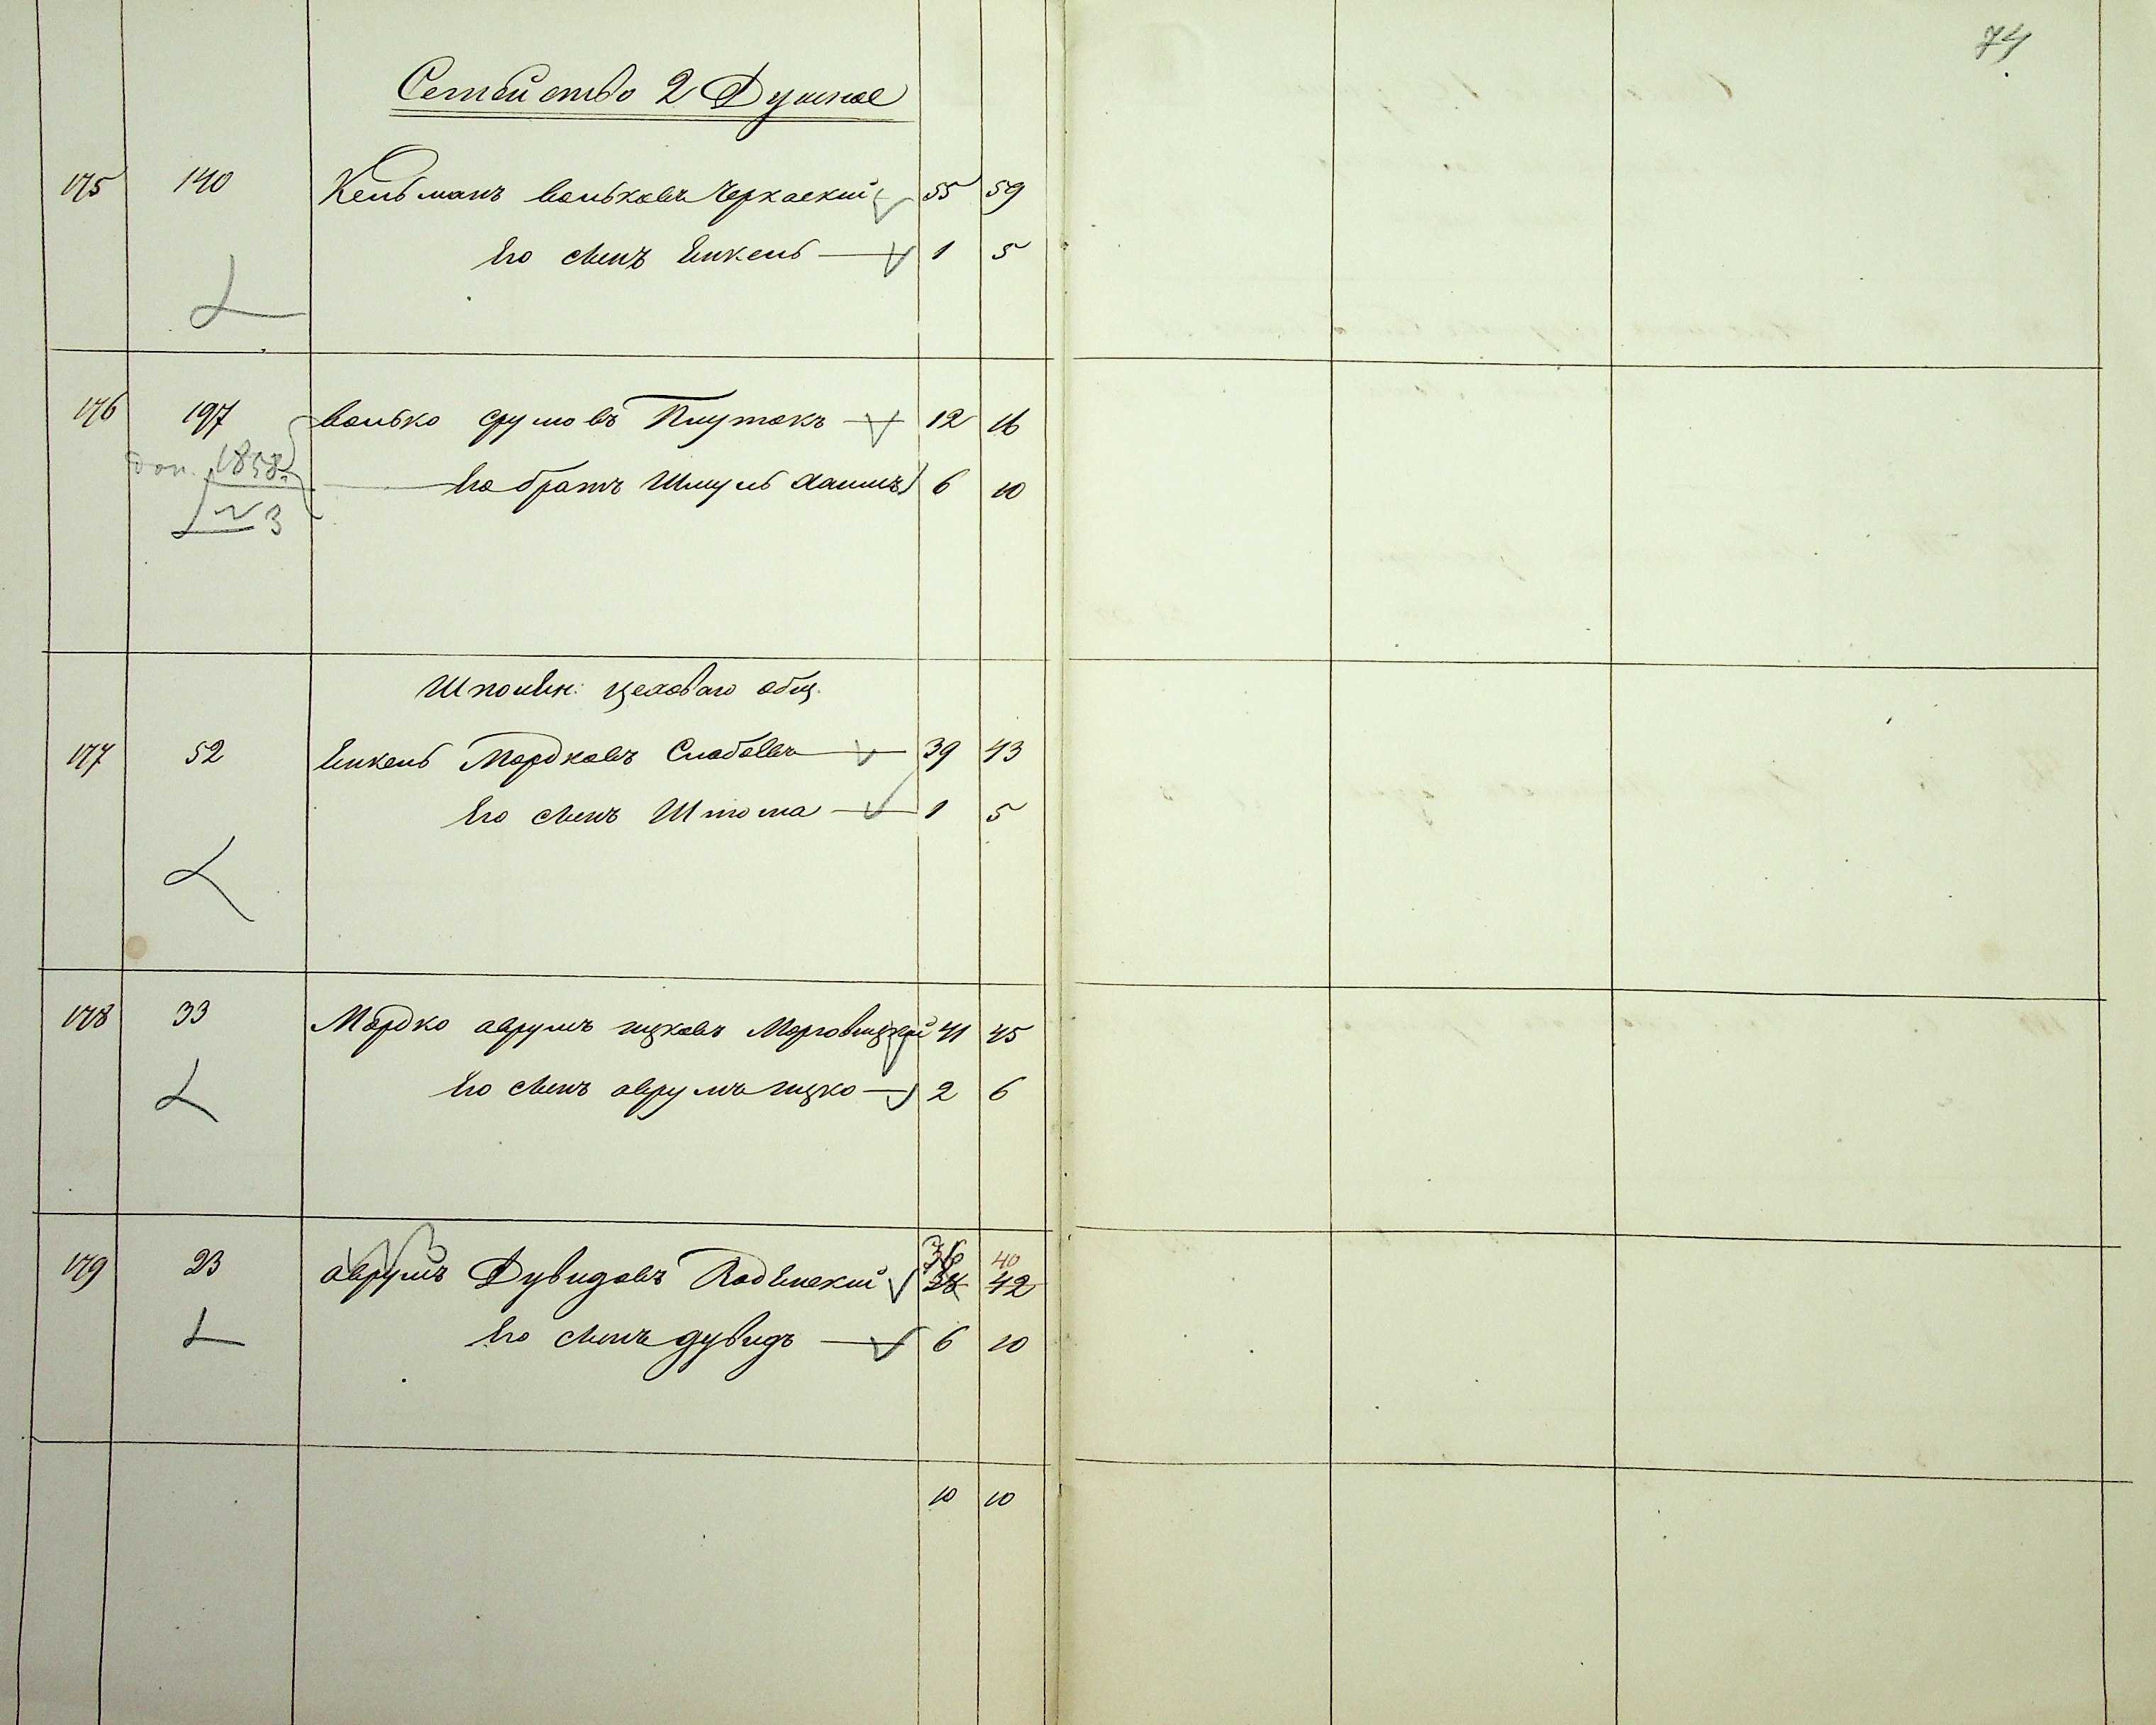 74
Семейство 2 Душное
175 140 Кельманъ Вольковъ Черкаский 55 59
Его сынъ Инкель 1 5
176 197 Волько Срумовъ Плутокъ 12 16
доп. 1858 г.
Его братъ Шмуль Хаимъ 6 10
№ 3
Шполян: цеховаго общ.
177 52 Инкель Мордковъ Слабоевъ 39 43
Его сынъ Шлома 1 5
178 33 Мордко Аврумъ Ицковъ Морговицкий 41 45
Его сынъ Аврумъ Ицко 2 6
36 40
179 23 Аврумъ Дувидовъ Радынский 38 42
Его сынъ Дувидъ 6 10
10 10